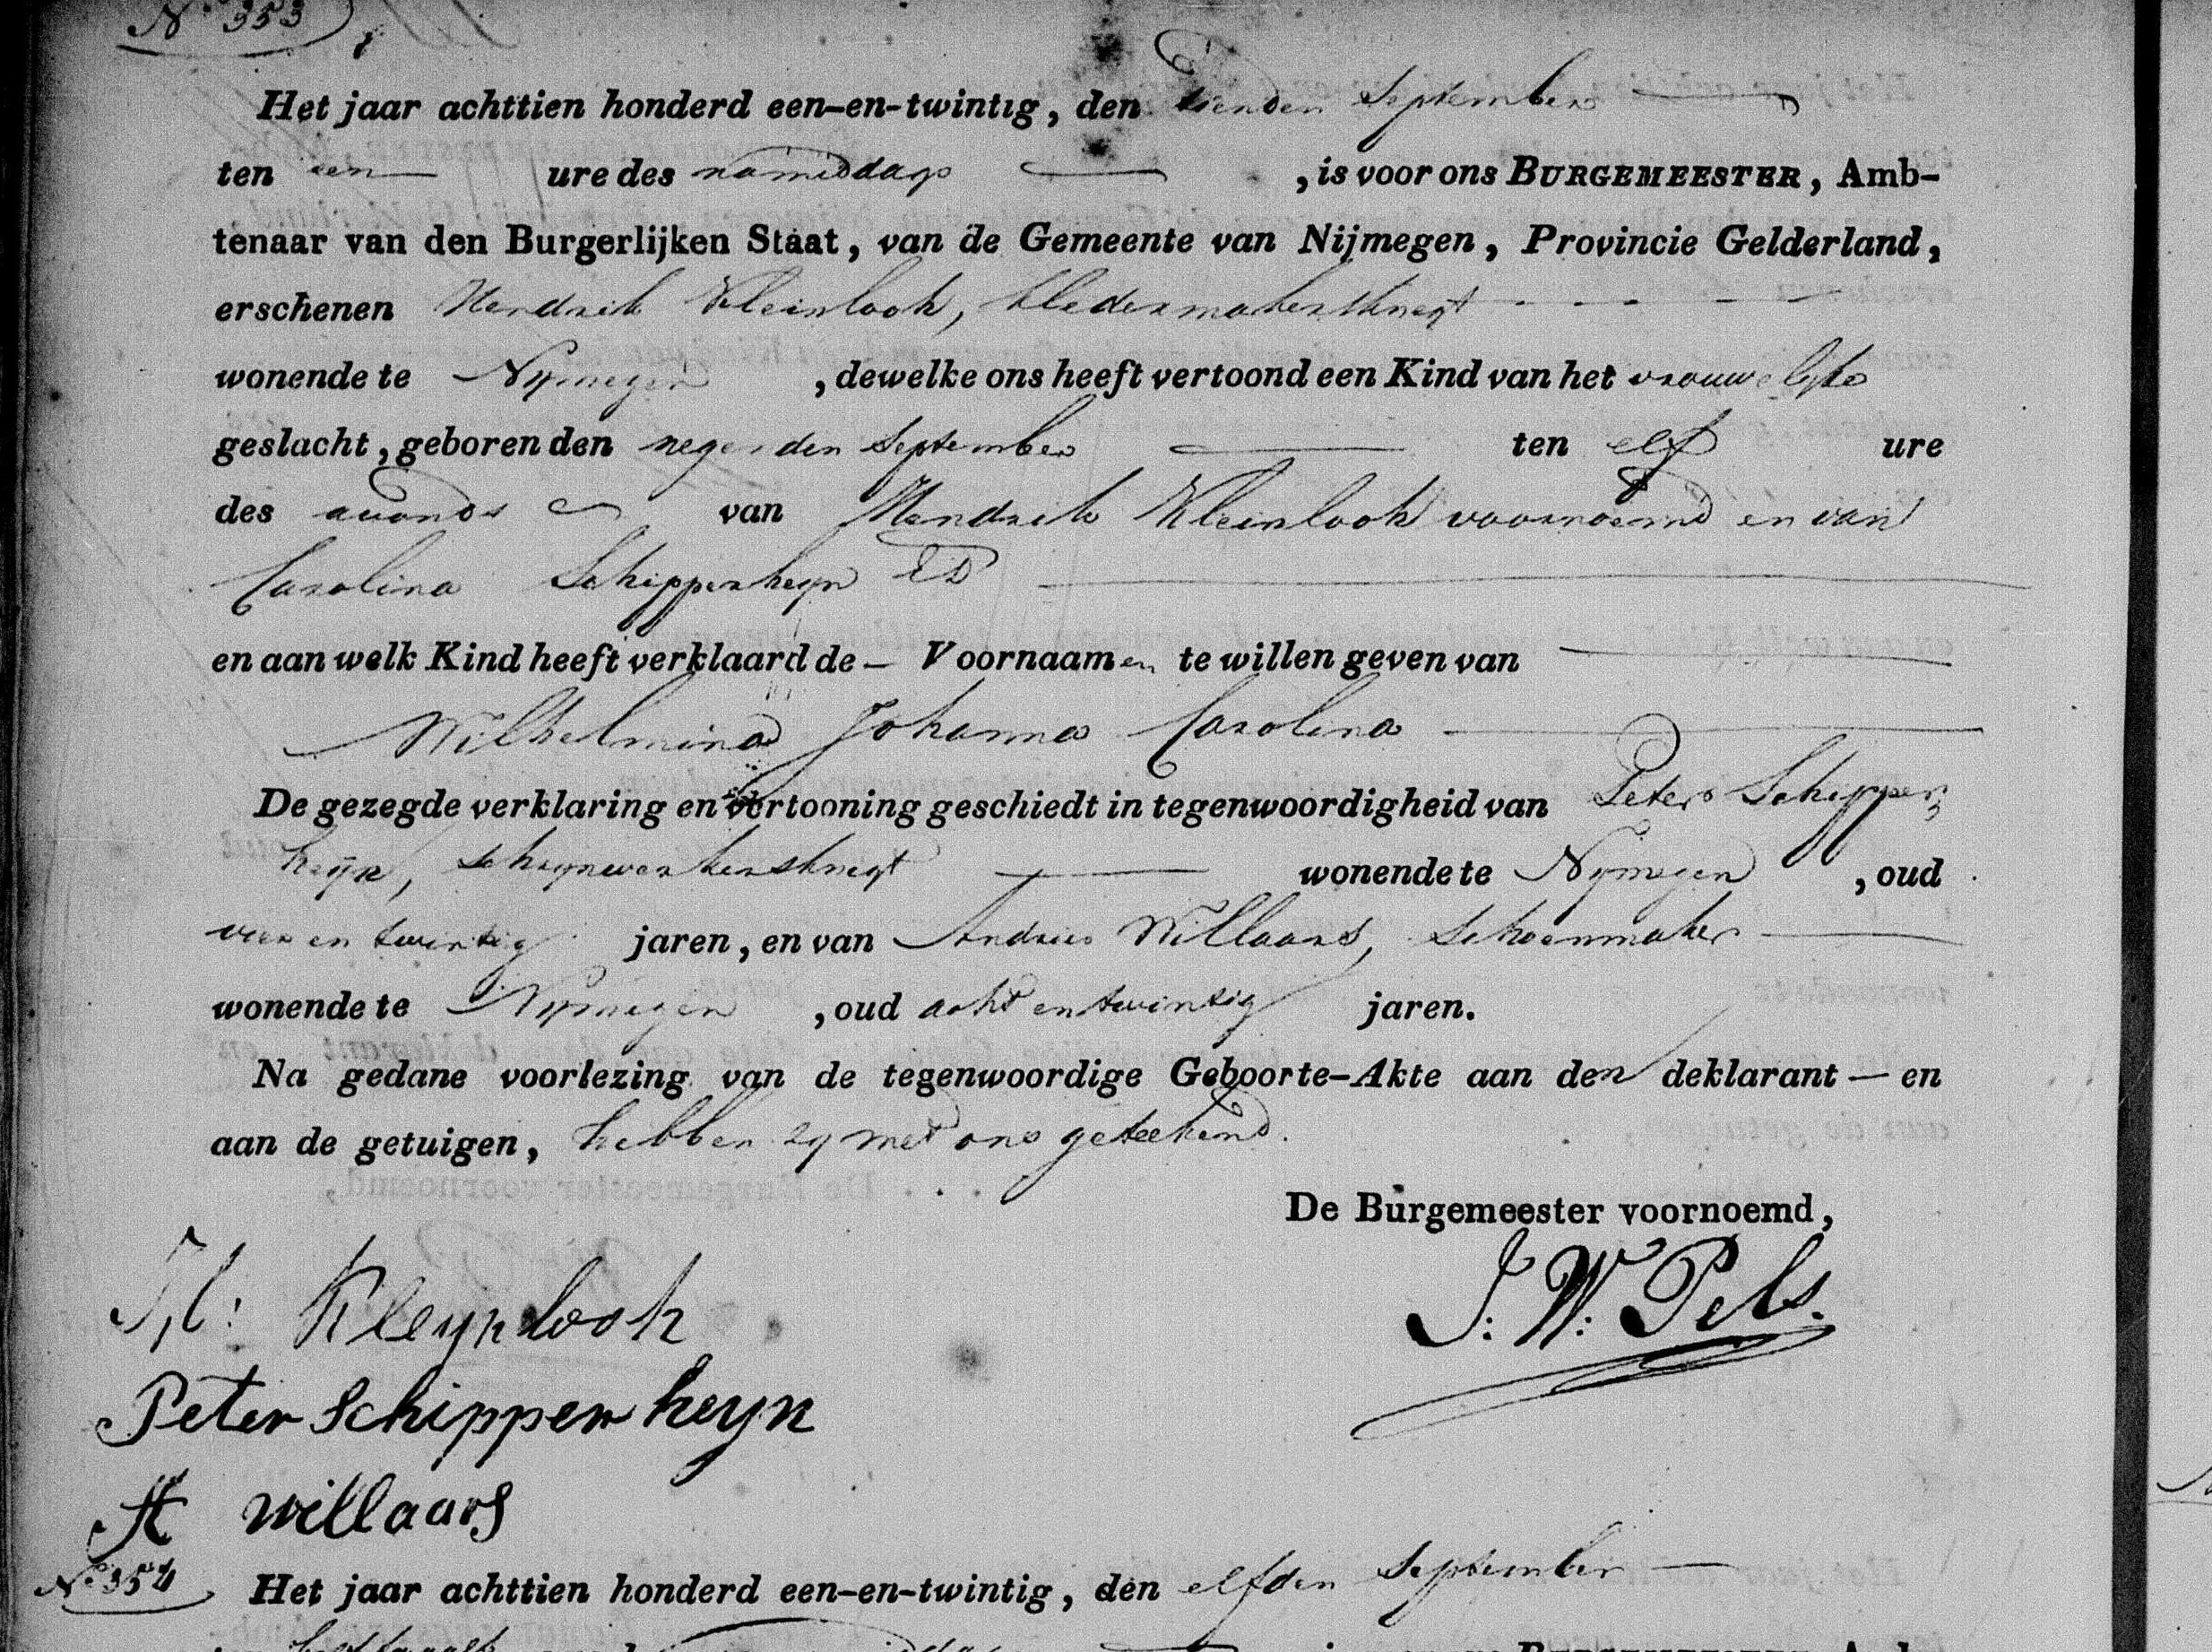 N.o 353
Het jaar achttien honderd een-en-twintig, den tienden September
ten een ure des namiddags , is voor ons BURGEMEESTER, Amb-
tenaar van den Burgerlijken Staat, van de Gemeente van Nijmegen, Provincie Gelderland,
erschenen Hendrik Kleinlook, kledermakersknegt
wonende te Nymegen , dewelke ons heeft vertoond een Kind van het vrouwelyke
geslacht, geboren den negenden September ten elf ure
des avonds van Hendrik Kleinlook voornoemd en van
Carolina Schippenheyn
en aan welk Kind heeft verklaard de Voornaamen te willen geven van
Wilhelmina Johanna Carolina
De gezegde verklaring en vertooning geschiedt in tegenwoordigheid van Peter Schippen
heyn, schrynwerkersknegt wonende te Nymegen , oud
vier en twintig jaren, en van Andries Willaars, Schoenmaker
wonende te Nymegen , oud acht en twintig jaren.
Na gedane voorlezing van de tegenwoordige Geboorte-Akte aan den deklarant — en
aan de getuigen, hebben zy met ons geteekend.
De Burgemeester voornoemd,
H: Kleynlook
J: W: Pels.
Peter Schippenheyn
A willaars
N.o 354
Het jaar achttien honderd een-en-twintig, den elfden September